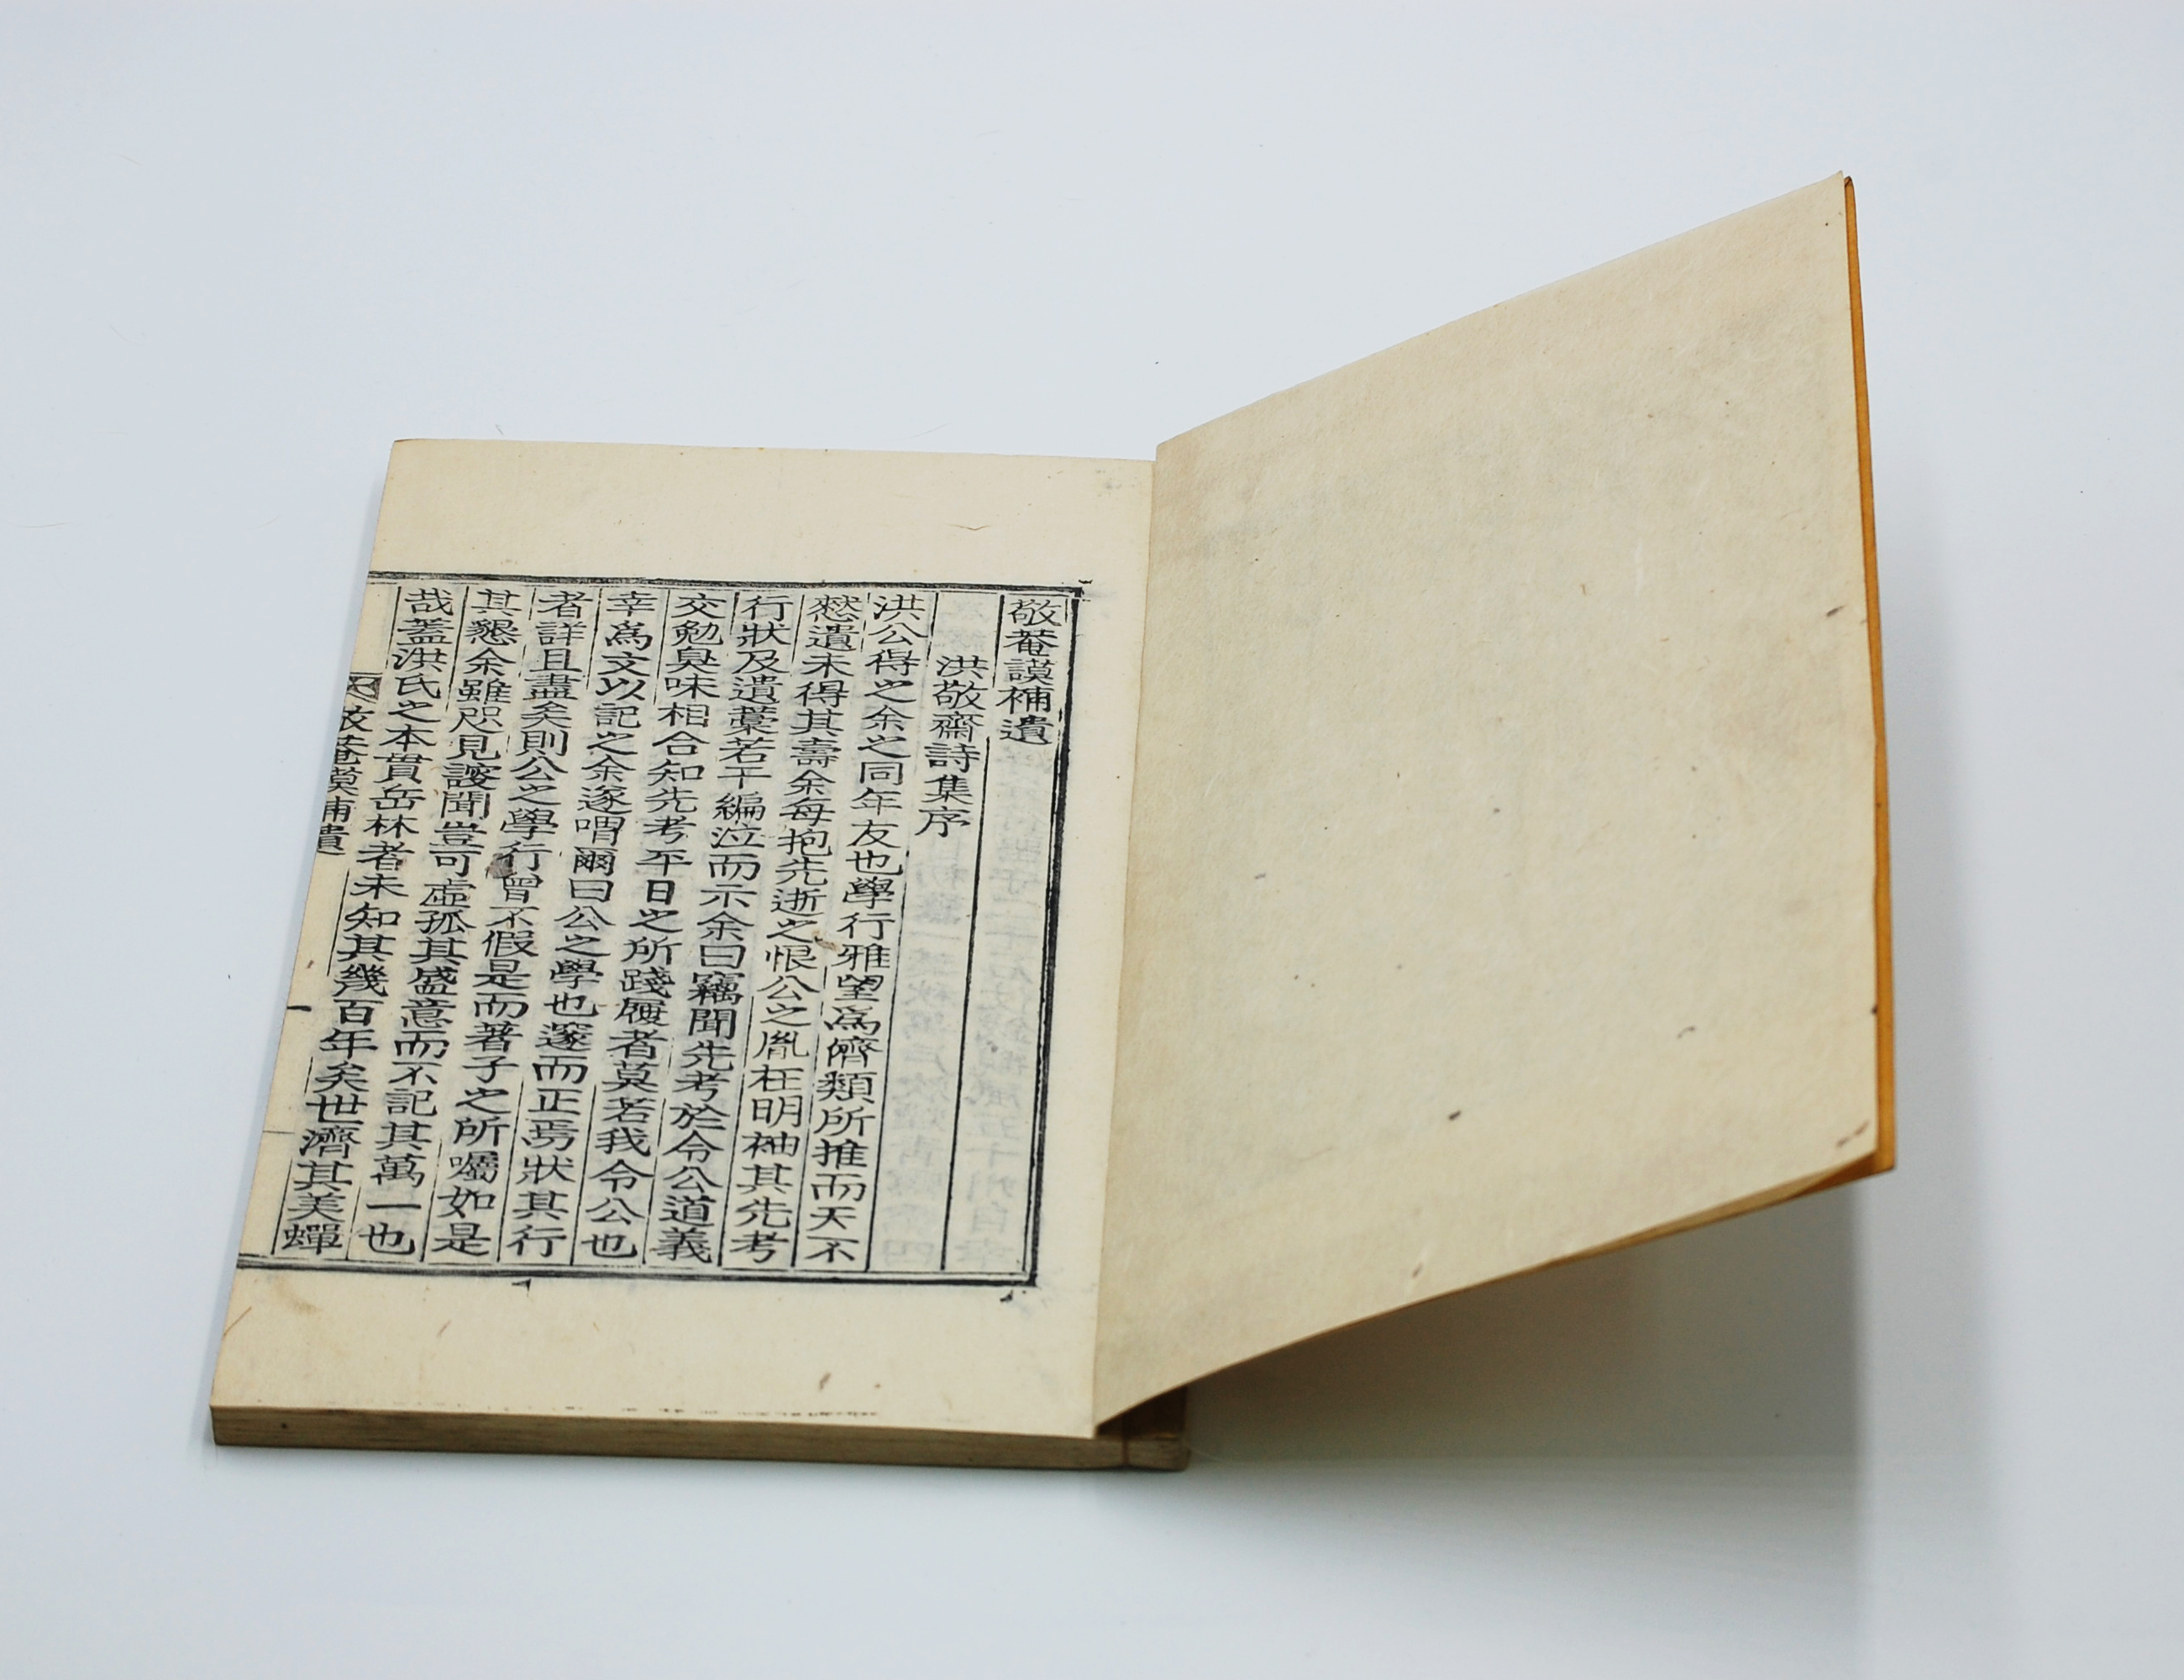 敬菴謨補遺
洪敬齋詩集序
洪公得之余之同年友也學行雅望爲儕類所推而天不
憖遺未得其壽余每抱先逝之恨公之胤在明袖其先考
行狀及遺藁若干編泣而示余曰竊聞先考於令公道義
交勉臭味相合知先考平日之所踐履者莫若我令公也
幸爲文以記之余遂喟爾曰公之學也邃而正焉狀其行
者詳且盡矣則公之學行曾不假是而著子之所囑如是
其懇余雖咫見謏聞豈可虛孤其盛意而不記其萬一也
哉蓋洪氏之本貫岳林者未知其幾百年矣世濟其美蟬
敬菴謨補遺